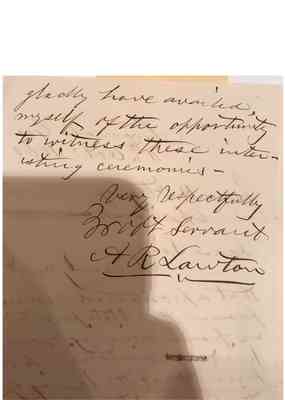 gladly have availed,
myself of the opportunity
to witness these inter-
esting ceremonies -
Very respectfully
Yr obt Servant
A R Lawton